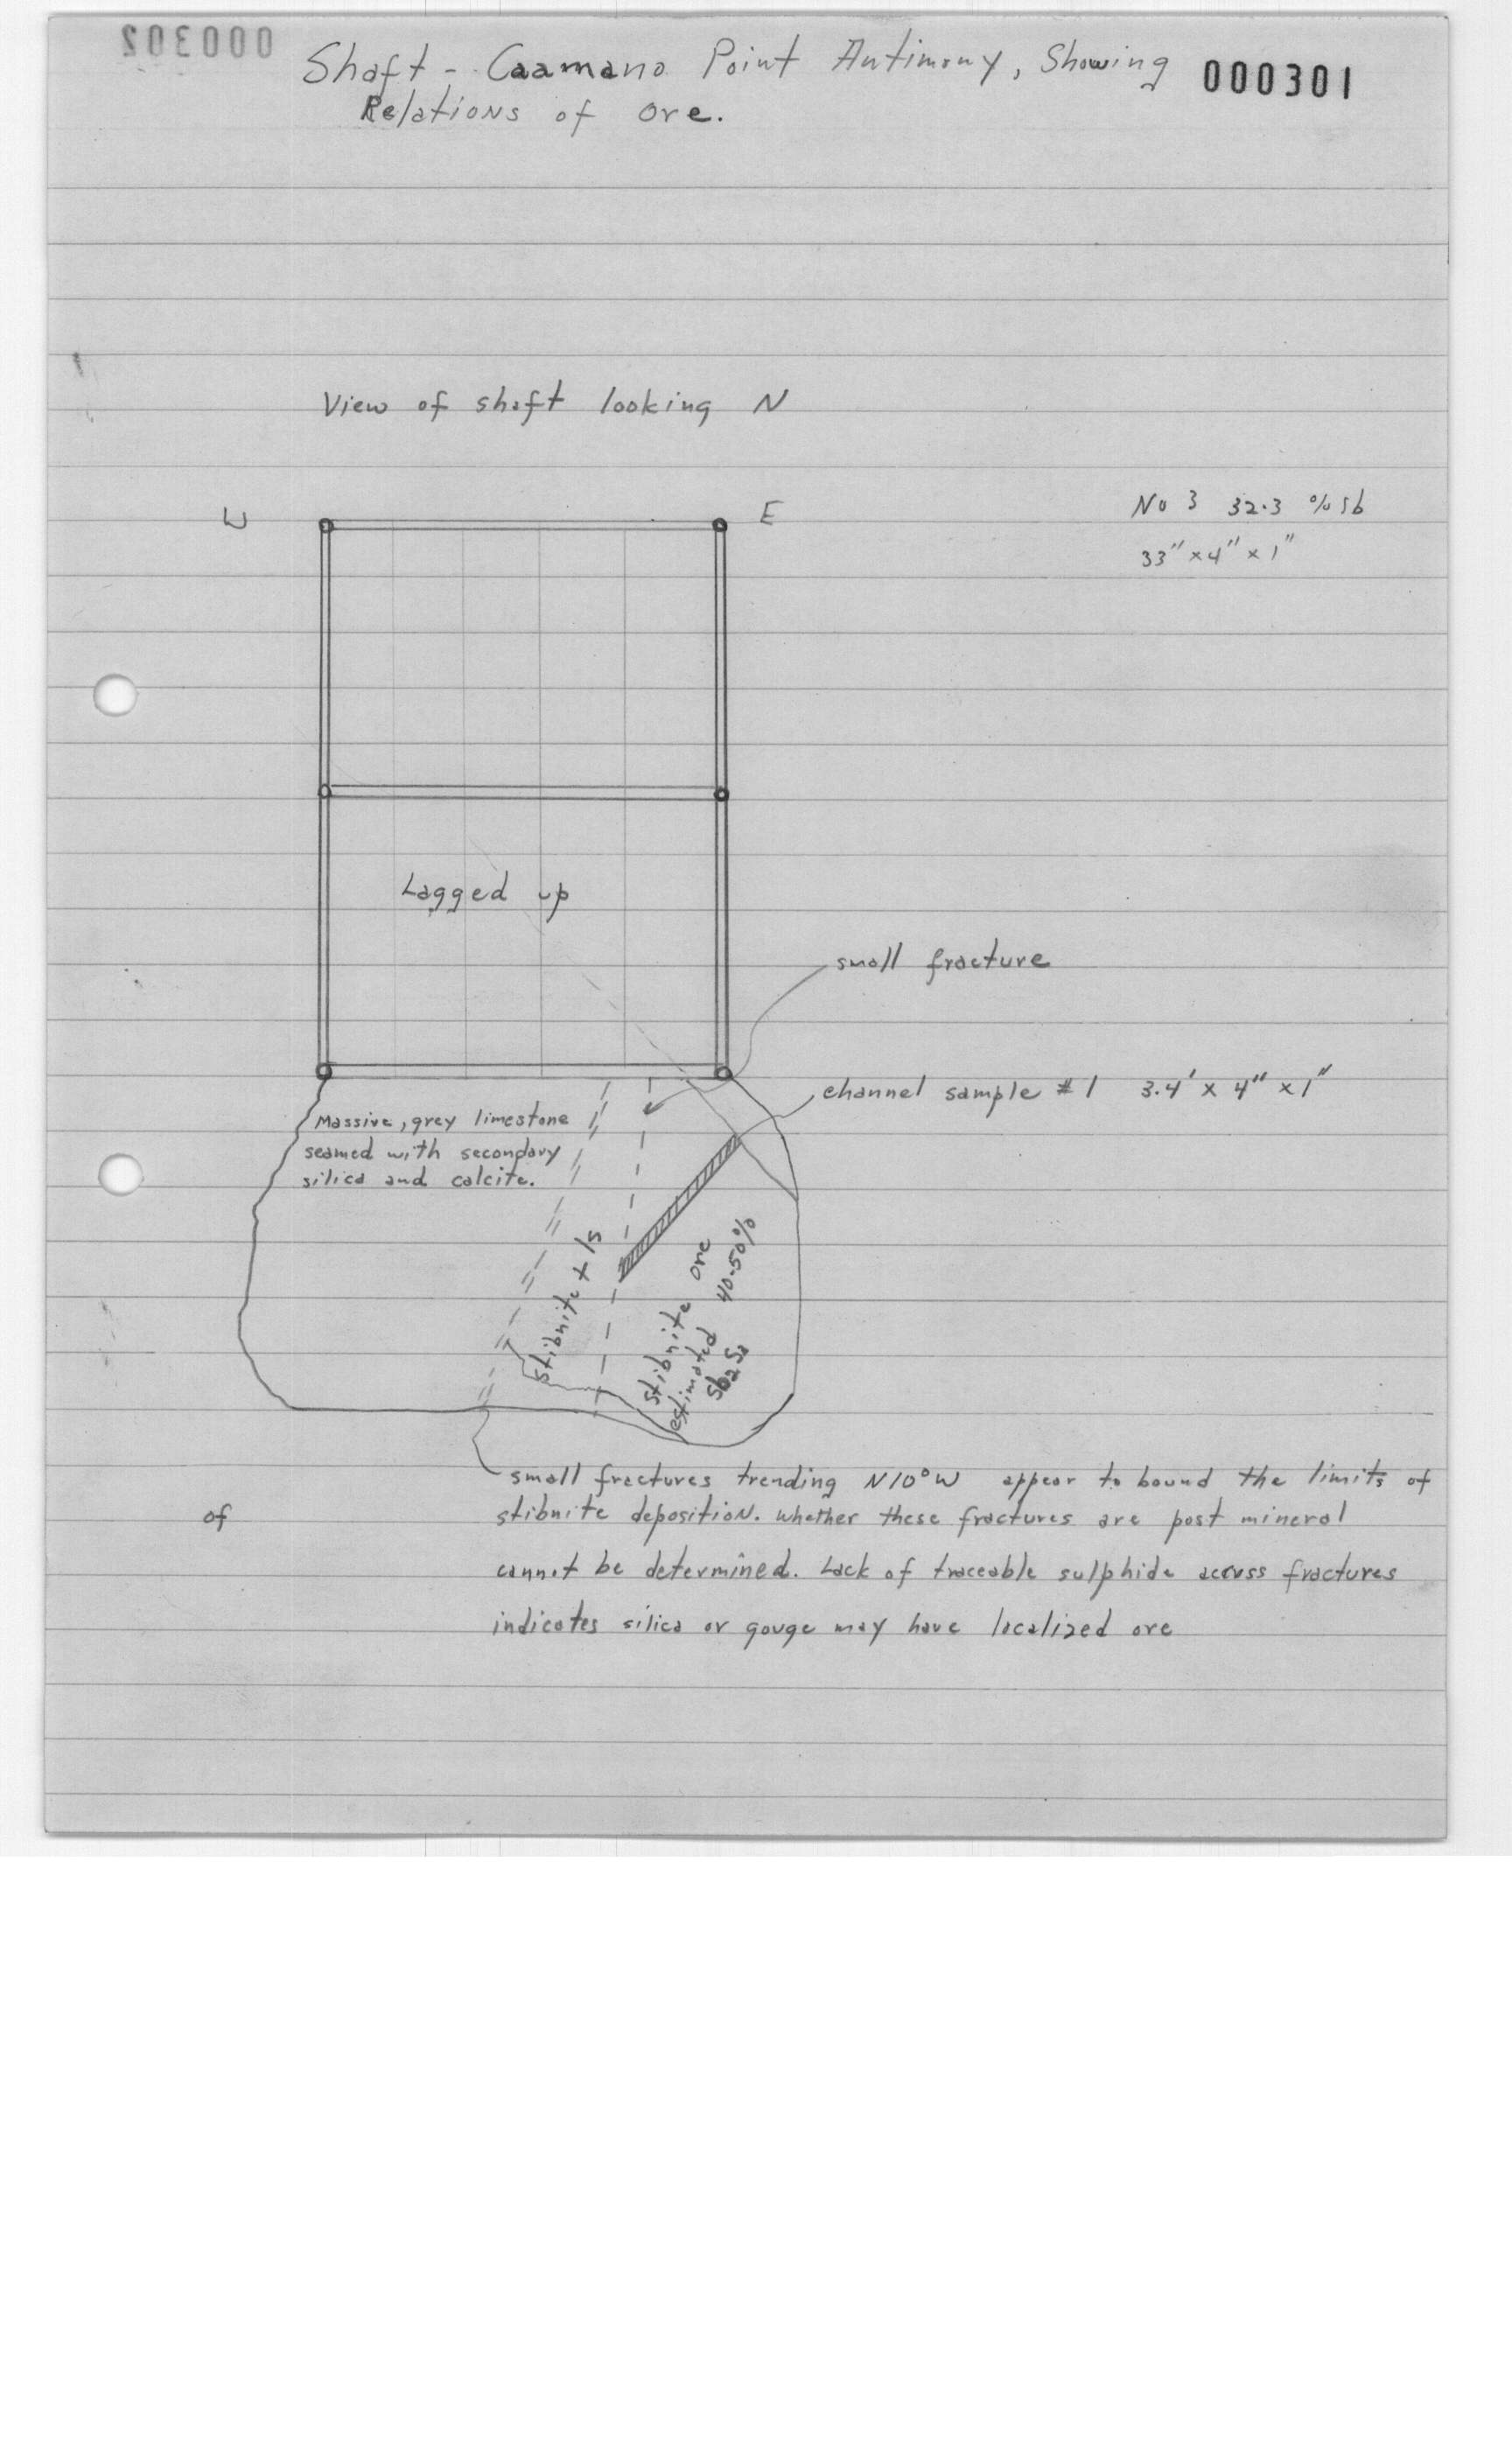 000302
Shaft - Caamano Point Antimony, Showing 000301
Relations of ore.
View of shaft looking N
W E
No 3 32.3 % Sb
33" x 4" x 1"
Lagged up
small fracture
channel sample #1 3.4' x 4" x 1"
Massive, grey limestone
seamed with secondary
silica and calcite.
Stibnite + ls
Stibnite ore
estimated 40-50%
Sb2S3
small fractures trending N10°W appear to bound the limits of
of
stibnite deposition. whether these fractures are post mineral
cannot be determined. Lack of traceable sulphide across fractures
indicates silica or gouge may have localized ore